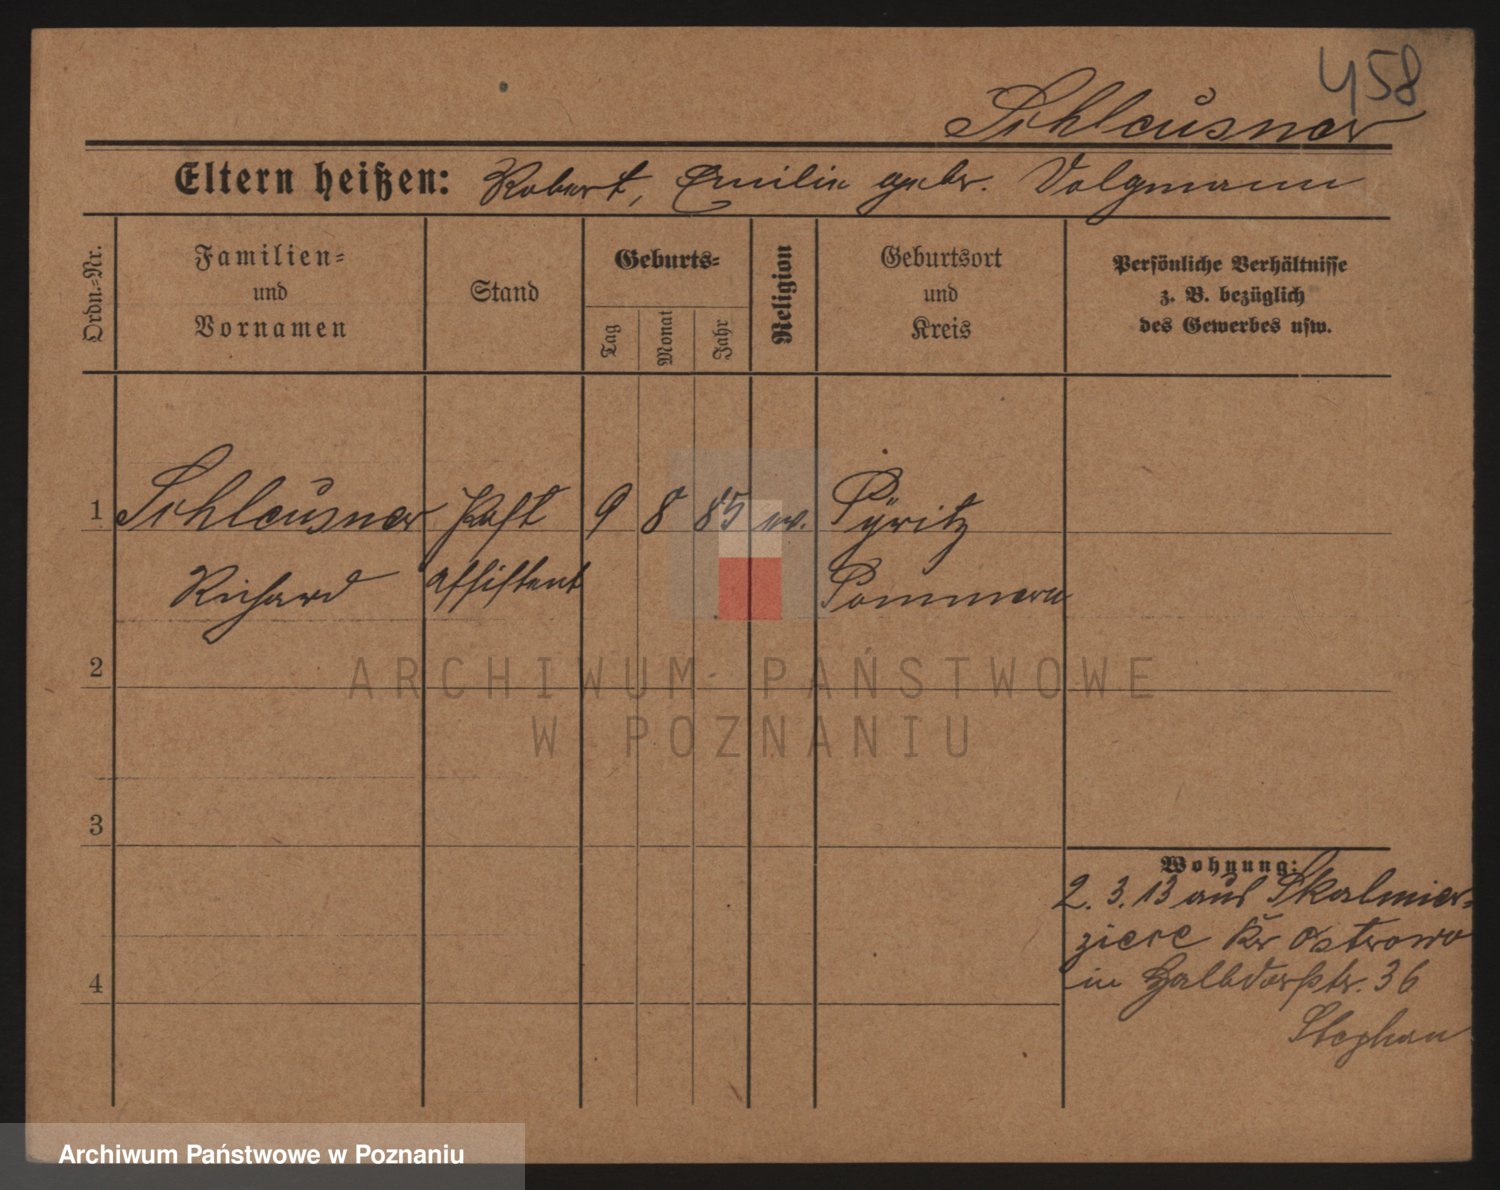 458
Schleusner
Eltern heißen: Robert, Emilie gebr. Volgmann
Ordn.-Nr.
Familien- und Vornamen
Stand
Geburts-
Tag
Monat
Jahr
Religion
Geburtsort und Kreis
Persönliche Verhältnisse
z. B. bezüglich
des Gewerbes usw.
1 Schleusner Post 9 8 85 ev. Pyritz
Richard assistent Pommern
2
3
4
Wohnung:
2. 3. 13 aus Skalmier-
ziece Kr Ostrowo
in Halbdorfstr. 36
Stephan
ARCHIWUM PAŃSTWOWE
W POZNANIU
Archiwum Państwowe w Poznaniu